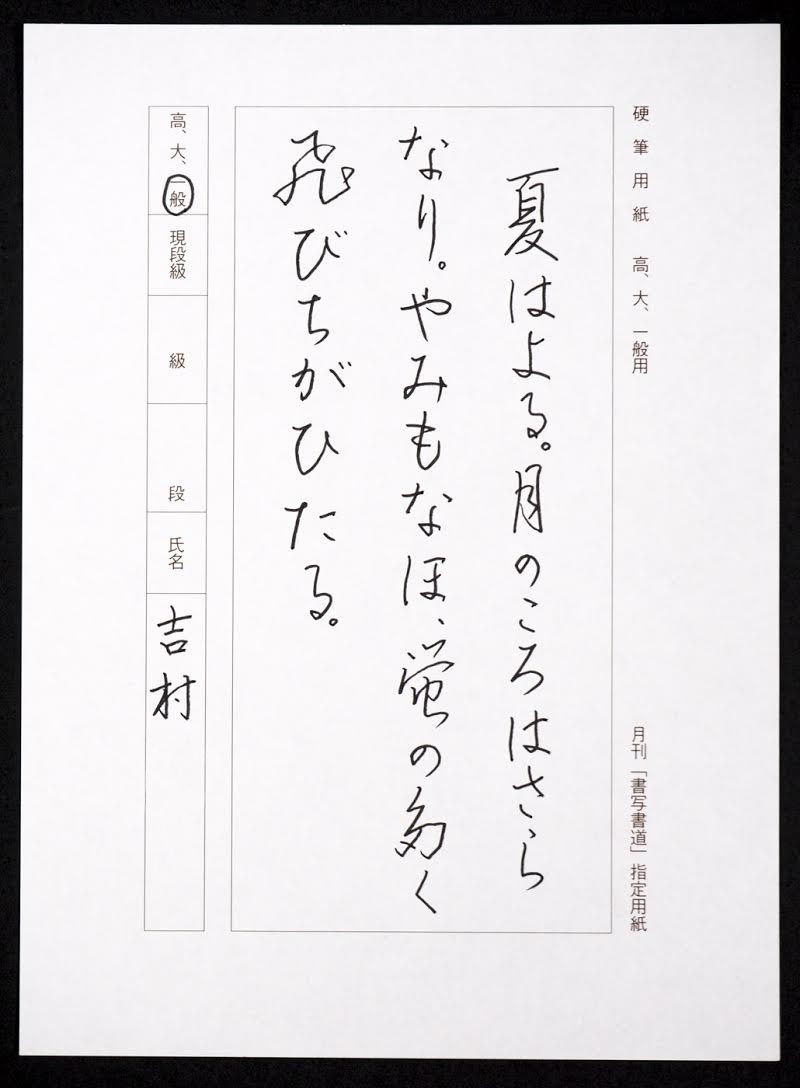 硬筆用紙 高、大、一般用
月刊「書写書道」指定用紙
夏はよる。月のころはさら
なり。やみもなほ、蛍の多く
飛びちがひたる。
高、大、一般
現段級
級
段
氏名
吉村